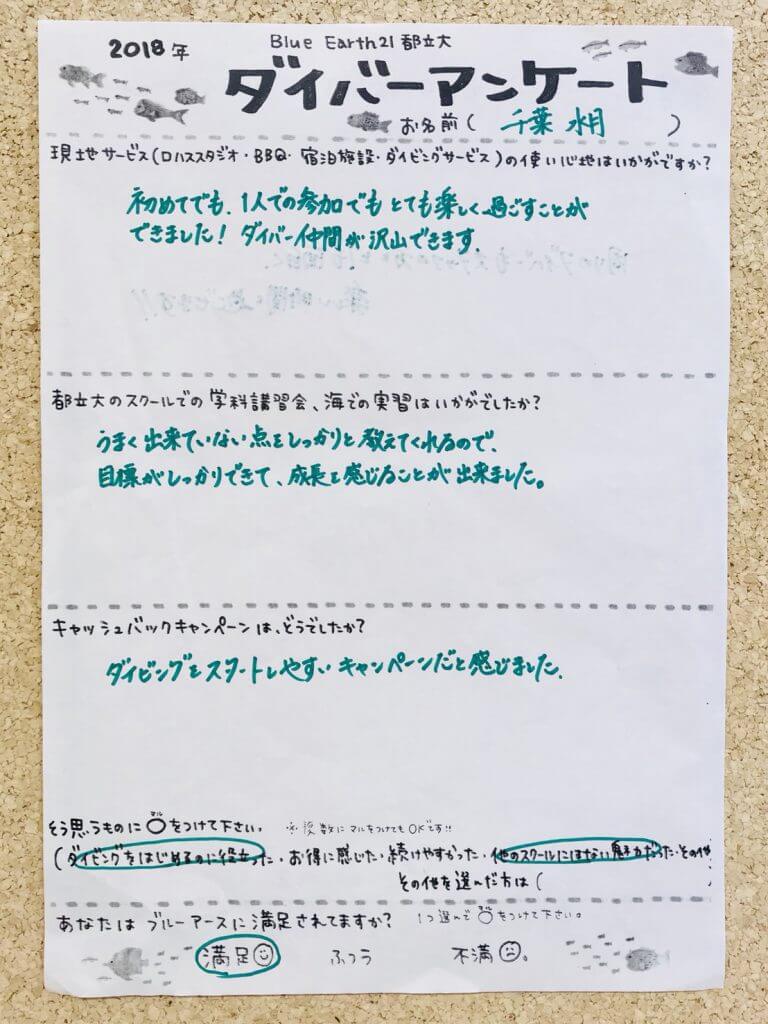 2018年
Blue Earth21 都立大
ダイバーアンケート
お名前( 千葉 水月 )
現地サービス(ロハススタジオ・BBQ・宿泊施設・ダイビングサービス)の使い心地はいかがですか?
初めてでも、1人での参加でもとても楽しく過ごすことが
できました! ダイバー仲間が沢山できます.
都立大のスクールでの学科講習会、海での実習はいかがでしたか?
うまく出来ていない点をしっかりと教えてくれるので、
目標がしっかりできて、成長を感じることが出来ました。
キャッシュバックキャンペーンは、どうでしたか?
ダイビングをスタートしやすいキャンペーンだと感じました.
そう思うものに○をつけて下さい。 ※複数にマルをつけてもOKです!!
マル
(ダイビングをはじめるのに役立った・お得に感じた・続けやすかった・他のスクールにはない魅力だった・その他
その他を選んだ方は( )
あなたはブルーアースに満足されてますか? 1つ選んで○をつけて下さい。
満足 ふつう 不満。